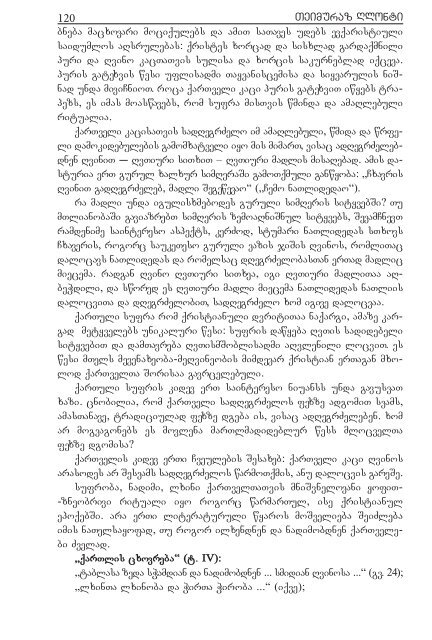 120 თეიმურაზ ღლონტი
ბნება მაცხოვარი მოციქულებს და ამით სათავეს უდებს ევქარისტიული
საიდუმლოს აღსრულებას: ქრისტეს ხორცად და სისხლად გარდაქმნილი
პური და ღვინო კაცთათვის სულისა და ხორცის საკურნებლად იქცევა.
პურის გატეხვის წესი უფლისადმი თაყვანისცემისა და სიყვარულის ნიშ-
ნად უნდა მივიჩნიოთ. როცა ქართველი კაცი პურის გატეხვით იწყებს ტრა-
პეზს, ეს იმას მოასწავებს, რომ სუფრა მისთვის წმინდა და ამაღლებული
რიტუალია.
ქართველი კაცისათვის სადღეგრძელო იმ ამაღლებული, წმიდა და წრფე-
ლი დამოკიდებულების გამომხატველი იყო მის მიმართ, ვისაც ადღეგრძელებ-
დნენ ღვინით — ღვთიური სითხით – ღვთიური მადლის მისაღებად. ამის და-
სტურია ერთ გურულ ხალხურ სიმღერაში გამოთქმული განწყობა: „ჩხავრის
ღვინით გადღეგრძელებ, მადლი შეგეწევაო“ („ჩემო ნათლიდედაო“).
რა მადლი უნდა იგულისხმებოდეს გურული სიმღერის სიტყვებში? თუ
მთლიანობაში გავიაზრებთ სიმღერის ზემოაღნიშნულ სიტყვებს, შევამჩნევთ
რამდენიმე საინტერესო ასპექტს, კერძოდ, სტუმარი ნათლიდედას სთხოვს
ჩხავერის, როგორც საუკეთესო გურული ვაზის ჯიშის ღვინოს, რომლითაც
დალოცავს ნათლიდედას და რომელსაც დღეგრძელობასთან ერთად მადლიც
მიეცემა. რადგან ღვინო ღვთიური სითხეა, იგი ღვთიური მადლითაა აღ-
ბეჭდილი, და სწორედ ეს ღვთიური მადლი მიეცემა ნათლიდედას ნათლიის
დალოცვითა და დღეგრძელობით, სადღეგრძელო ხომ იგივე დალოცვაა.
ქართული სუფრა რომ ქრისტიანული დვრიტითაა ნაქარგი, ამაზე კარ-
გად მეტყველებს უნიკალური წესი: სუფრის დაწყება ღვთის სადიდებელი
სიტყვებით და დამთავრება ღვთისმშობლისადმი აღვლენილი ლოცვით. ეს
წესი მთელს მევენახეობა-მეღვინეობის მიმდევარ ქრისტიან ერთაგან მხო-
ლოდ ქართველთა შორისაა გავრცელებული.
ქართული სუფრის კიდევ ერთ საინტერესო ნიუანსს უნდა გავუსვათ
ხაზი. ცნობილია, რომ ქართველი სადღეგრძელოს ფეხზე ადგომით სვამს,
ამასთანავე, ტრადიციულად ფეხზე დგება ის, ვისაც ადღეგრძელებენ. ხომ
არ მოგვაგონებს ეს მოვლენა მართლმადიდებლურ წესს მლოცველთა
ფეხზე დგომისა?
ქართველის კიდევ ერთი ჩვეულების შესახებ: ქართველი კაცი ღვინოს
არასოდეს არ შესვამს სადღეგრძელოს წარმოთქმის, ანუ დალოცვის გარეშე.
სუფრობა, ნადიმი, ლხინი ქართველთათვის მნიშვნელოვანი ყოფით-
-ზნეობრივი რიტუალი იყო როგორც წარმართულ, ისე ქრისტიანულ
ეპოქებში. არა ერთი ლიტერატურული წყაროს მოშველიება შეიძლება
იმის ნათელსაყოფად, თუ როგორ ილხენდნენ და ნადიმობდნენ ქართველე-
ბი ძველად.
„ქართლის ცხოვრება“ (ტ. IV):
„ტაბლასა ზედა სჭამდიან და ნადიმობდნენ ... სმიდიან ღვინოსა ...“ (გვ. 24);
„ლხინთა ლხინობა და ჭირთა ჭირობა ...“ (იქვე);